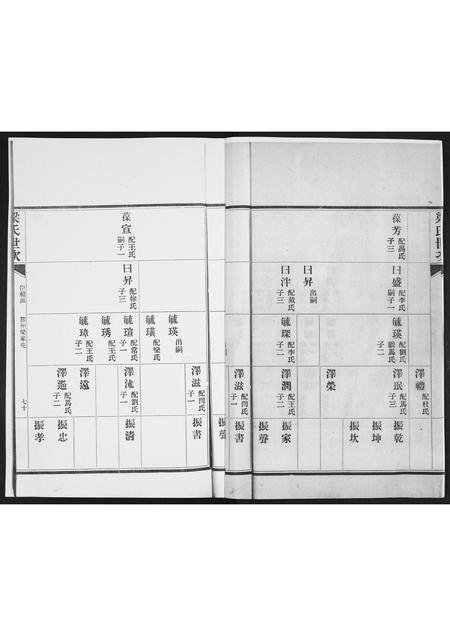 葆芳 配馮氏 子三
日盛 配李氏 嗣子一
日昇 出嗣
日泮 配戴氏 子三
毓瑛 配劉氏 繼馬氏 子二
毓琛 配李氏 子二
澤禮 配杜氏
澤珉 配馬氏 子三
澤榮
澤潤 配王氏 子二
澤滋 配閆氏 子一
振乾
振坤
振坎
振家
振聲
振書
梁氏世次
七十
葆宣 配王氏 嗣子一
日昇 配徐氏 子三
毓瑛 出嗣
毓璜 配欒氏
毓瑄 配常氏 子一
毓琇 配王氏
毓璋 配王氏 子二
澤滋 配閆氏 子一
澤泳 配劉氏 子一
澤遠
澤遙 配馬氏 子二
振聲
振書
振清
振忠
振孝